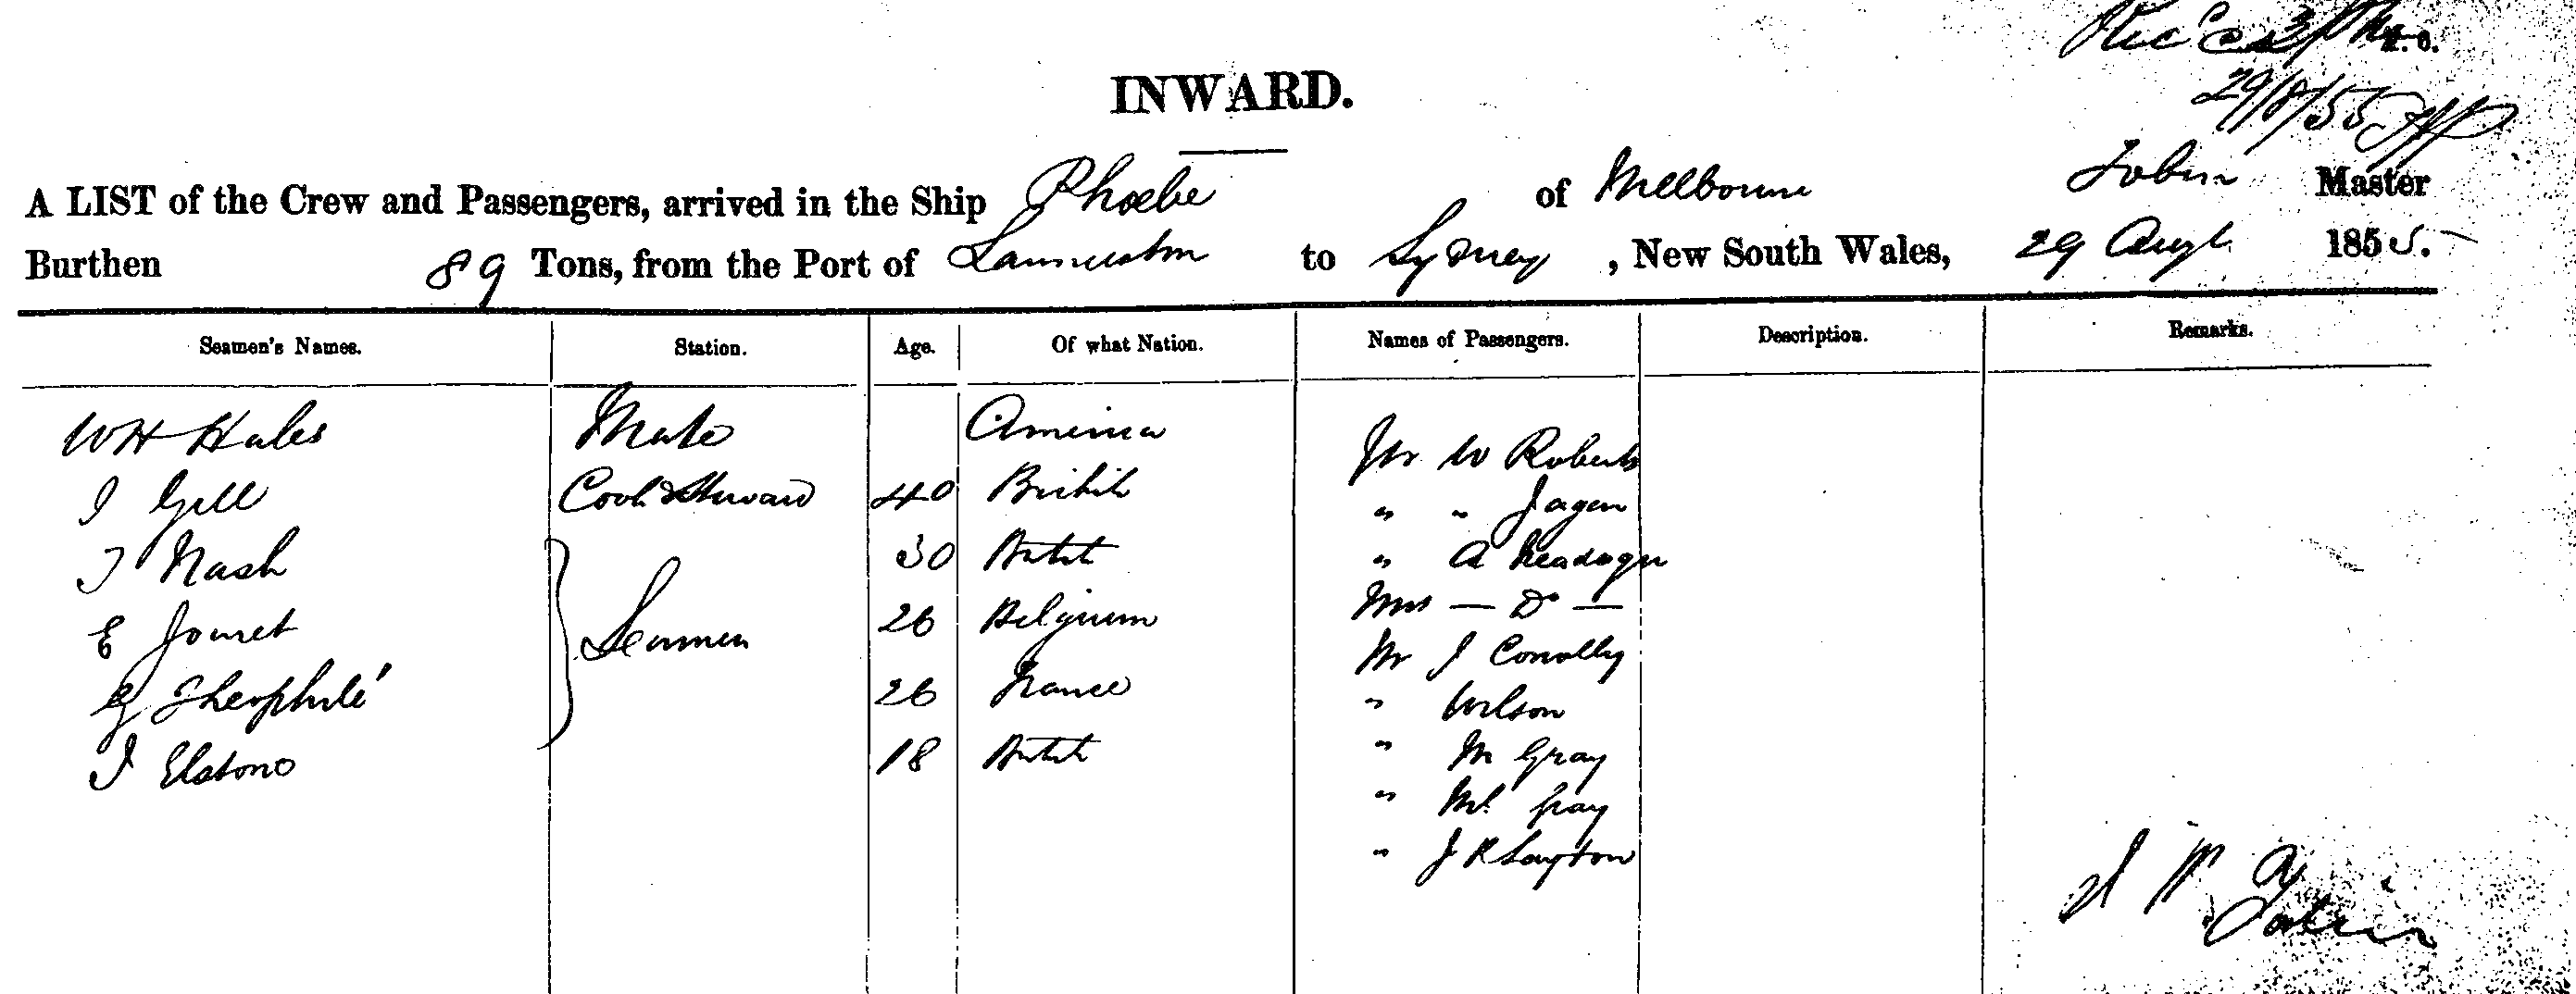 29/8/55
INWARD.
A LIST of the Crew and Passengers, arrived in the Ship Phoebe of Melbourne Tobin Master
Burthen 89 Tons, from the Port of Launceston to Sydney, New South Wales, 29 Augt 1855.
Seamen's Names. Station. Age. Of what Nation. Names of Passengers. Description. Remarks.
WH Hales Mate America Mr W Roberts
J Gell Cook & Steward 40 British " " Jagen
J Nash 30 British " A
E Jouret 26 Belgium Mrs — Do —
Seamen
G Theophilé 26 France Mr J Conolly
J Elstono 18 British " Wilson
" M Gray
" Gray
" J R Layton
Tobin